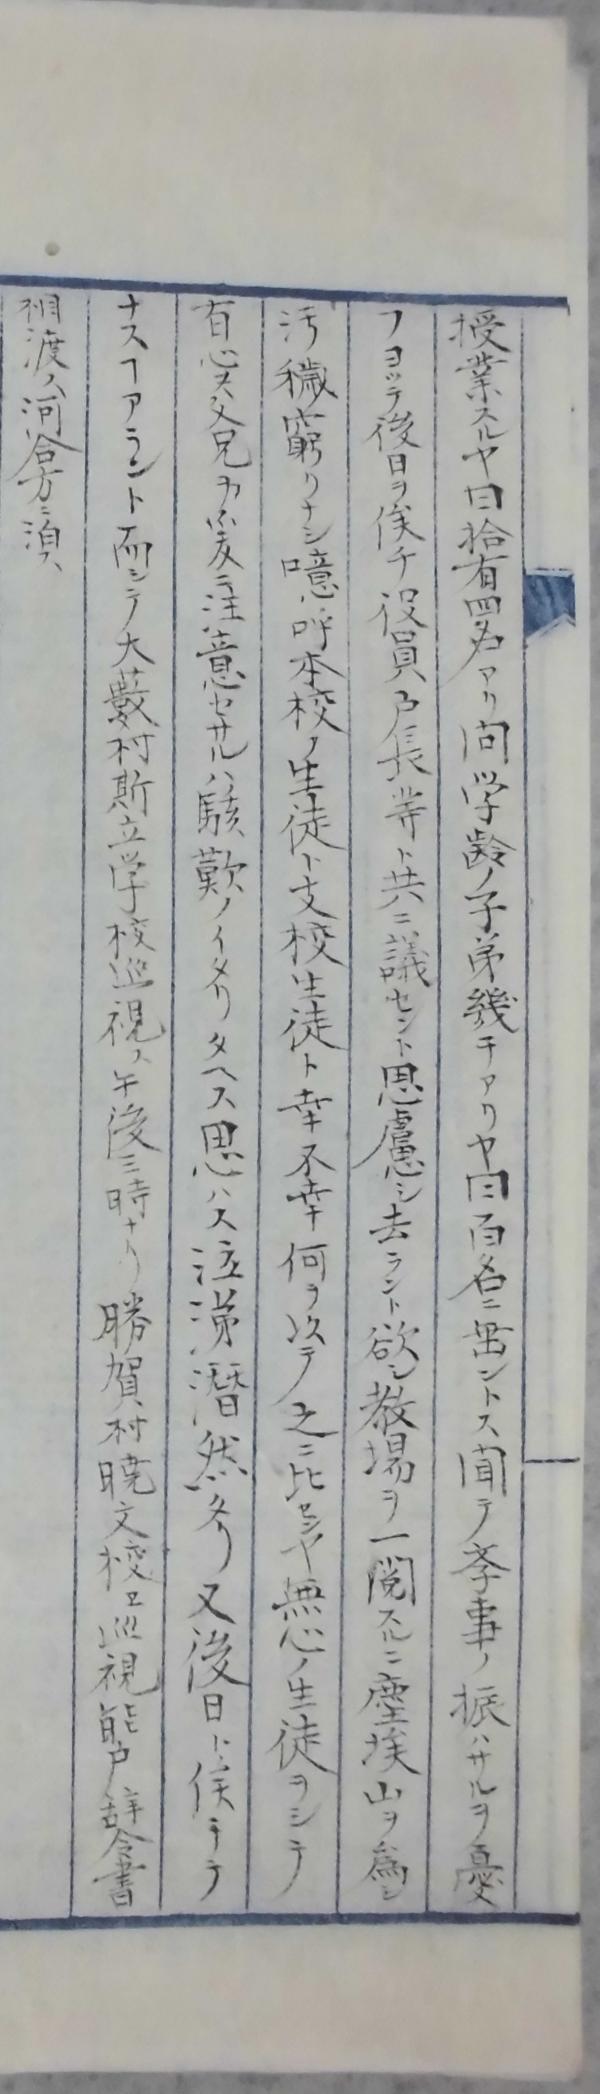 授業スルヤ曰拾有四名アリ問学齢ノ子弟幾千アリヤ曰百名ニ垂ントス聞テ学事ノ振ハサルヲ憂
フヨツテ後日ヲ俟チ役員戸長等ト共ニ議セント思慮シ去ラント欲シ教場ヲ一閲スルニ塵埃山ヲ為シ
汚穢窮リナシ噫呼本校ノ生徒ト支校生徒ト幸不幸何ヲ以テ之ニ比センヤ無心ノ生徒ヲシテ
有心ノ父兄カ爰ニ注意セサルハ駭歎ノイタリタヘス思ハス泣涕潸然タリ又後日ト俟チテ
ナスヿアラント而シテ大薮村斯立学校巡視ス午後三時ナリ勝賀村暁文校ヱ巡視能戸辞令書
相渡ス河合方ニ泊ス